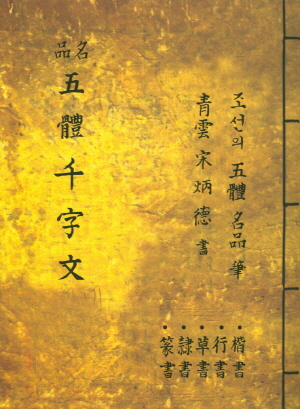 조선의 五體 名品 筆
青雲 宋炳德 書
名品
五體千字文
• 楷書
• 行書
• 草書
• 隸書
• 篆書